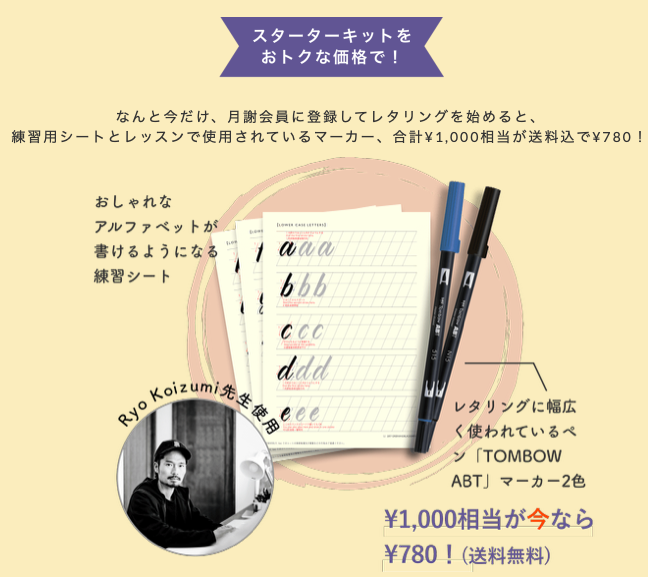 スターターキットを
おトクな価格で！
なんと今だけ、月謝会員に登録してレタリングを始めると、
練習用シートとレッスンで使用されているマーカー、合計¥1,000相当が送料込で¥780！
おしゃれな
アルファベットが
書けるようになる
練習シート
[LOWER CASE LETTERS]
a a a
b b b
c c c
d d d
e e e
Ryo Koizumi先生使用
レタリングに幅広
く使われているペ
ン「TOMBOW
ABT」マーカー2色
¥1,000相当が今なら
¥780！(送料無料)